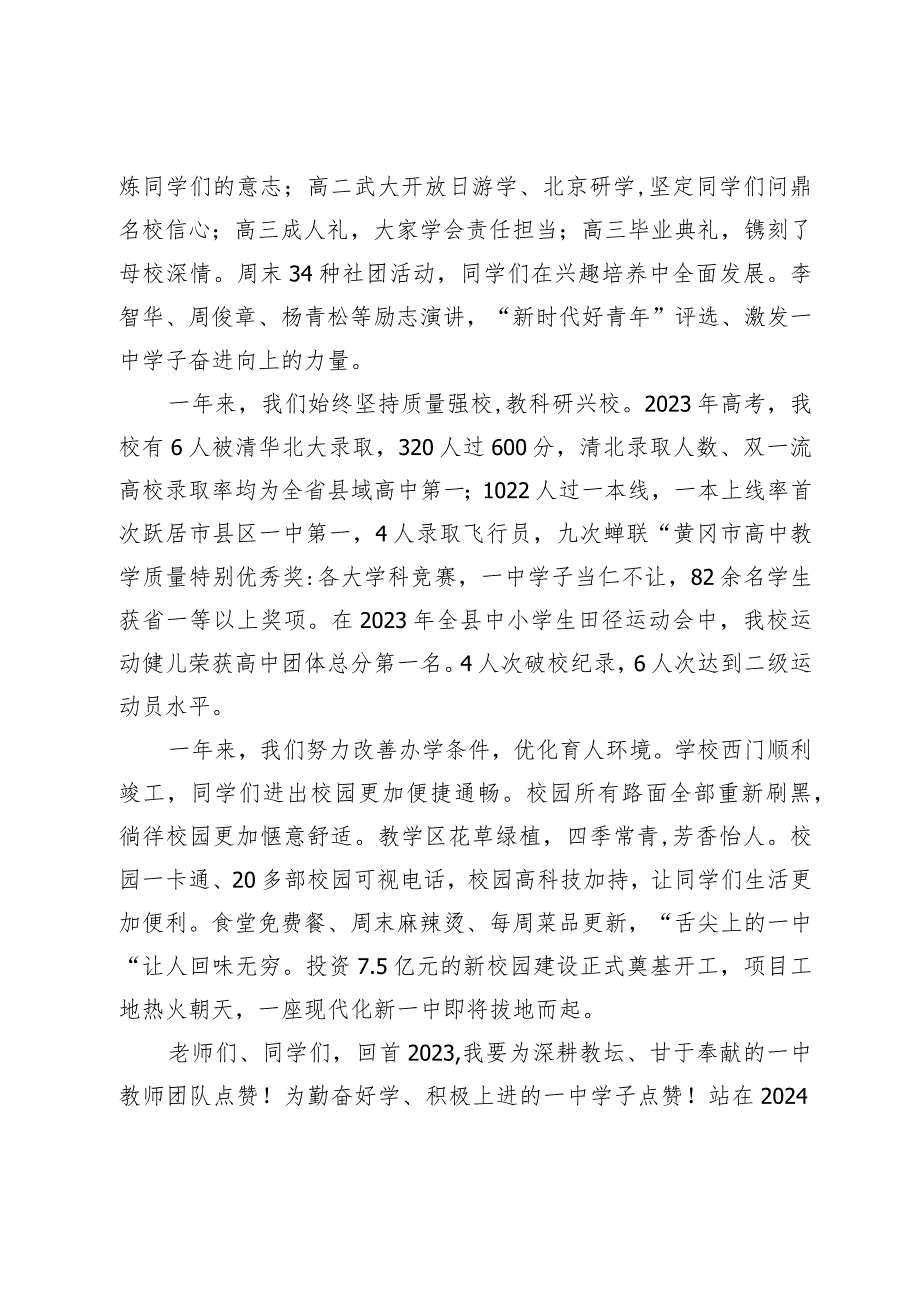 炼同学们的意志；高二武大开放日游学、北京研学,坚定同学们问鼎
名校信心；高三成人礼，大家学会责任担当；高三毕业典礼，镌刻了
母校深情。周末 34 种社团活动，同学们在兴趣培养中全面发展。李
智华、周俊章、杨青松等励志演讲，“新时代好青年”评选、激发一
中学子奋进向上的力量。
一年来，我们始终坚持质量强校,教科研兴校。2023 年高考，我
校有 6 人被清华北大录取，320 人过 600 分，清北录取人数、双一流
高校录取率均为全省县域高中第一；1022 人过一本线，一本上线率首
次跃居市县区一中第一，4 人录取飞行员，九次蝉联“黄冈市高中教
学质量特别优秀奖:各大学科竞赛，一中学子当仁不让，82 余名学生
获省一等以上奖项。在 2023 年全县中小学生田径运动会中，我校运
动健儿荣获高中团体总分第一名。4 人次破校纪录，6 人次达到二级运
动员水平。
一年来，我们努力改善办学条件，优化育人环境。学校西门顺利
竣工，同学们进出校园更加便捷通畅。校园所有路面全部重新刷黑，
徜徉校园更加惬意舒适。教学区花草绿植，四季常青,芳香怡人。校
园一卡通、20 多部校园可视电话，校园高科技加持，让同学们生活更
加便利。食堂免费餐、周末麻辣烫、每周菜品更新，“舌尖上的一中
“让人回味无穷。投资 7.5 亿元的新校园建设正式奠基开工，项目工
地热火朝天，一座现代化新一中即将拔地而起。
老师们、同学们，回首 2023,我要为深耕教坛、甘于奉献的一中
教师团队点赞！为勤奋好学、积极上进的一中学子点赞！站在 2024